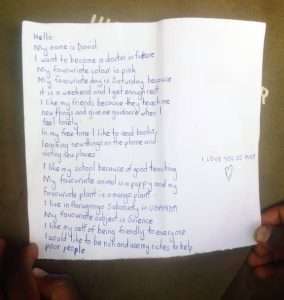 Hello
My name is David
I want to become a doctor in future
My favourite colour is pink
My favourite day is Saturday because
it is a weekend and I get enough rest
I like my friends because they teach me
new things and give me guidance when I
feel lonely
In my free time I like to read books,
learning new things on the phone and
visiting new places
I like my school because of good teaching
My favourite animal is a puppy and my
favourite plant is a mango plant
I live in Uganda
My favourite subject is Science
I like my self of being friendly to everyone
I would like to be rich and use my riches to help
poor people
I LOVE YOU SO MUCH